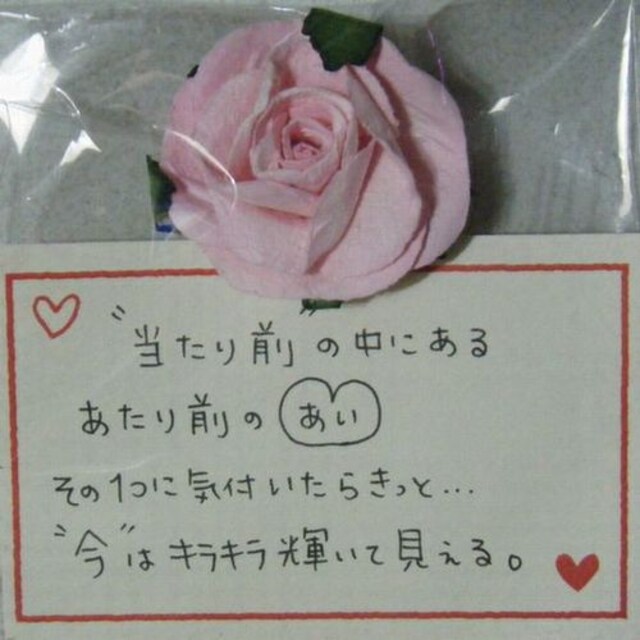 "当たり前"の中にある
あたり前の あい
その1つに気付いたらきっと…
"今"はキラキラ輝いて見える。